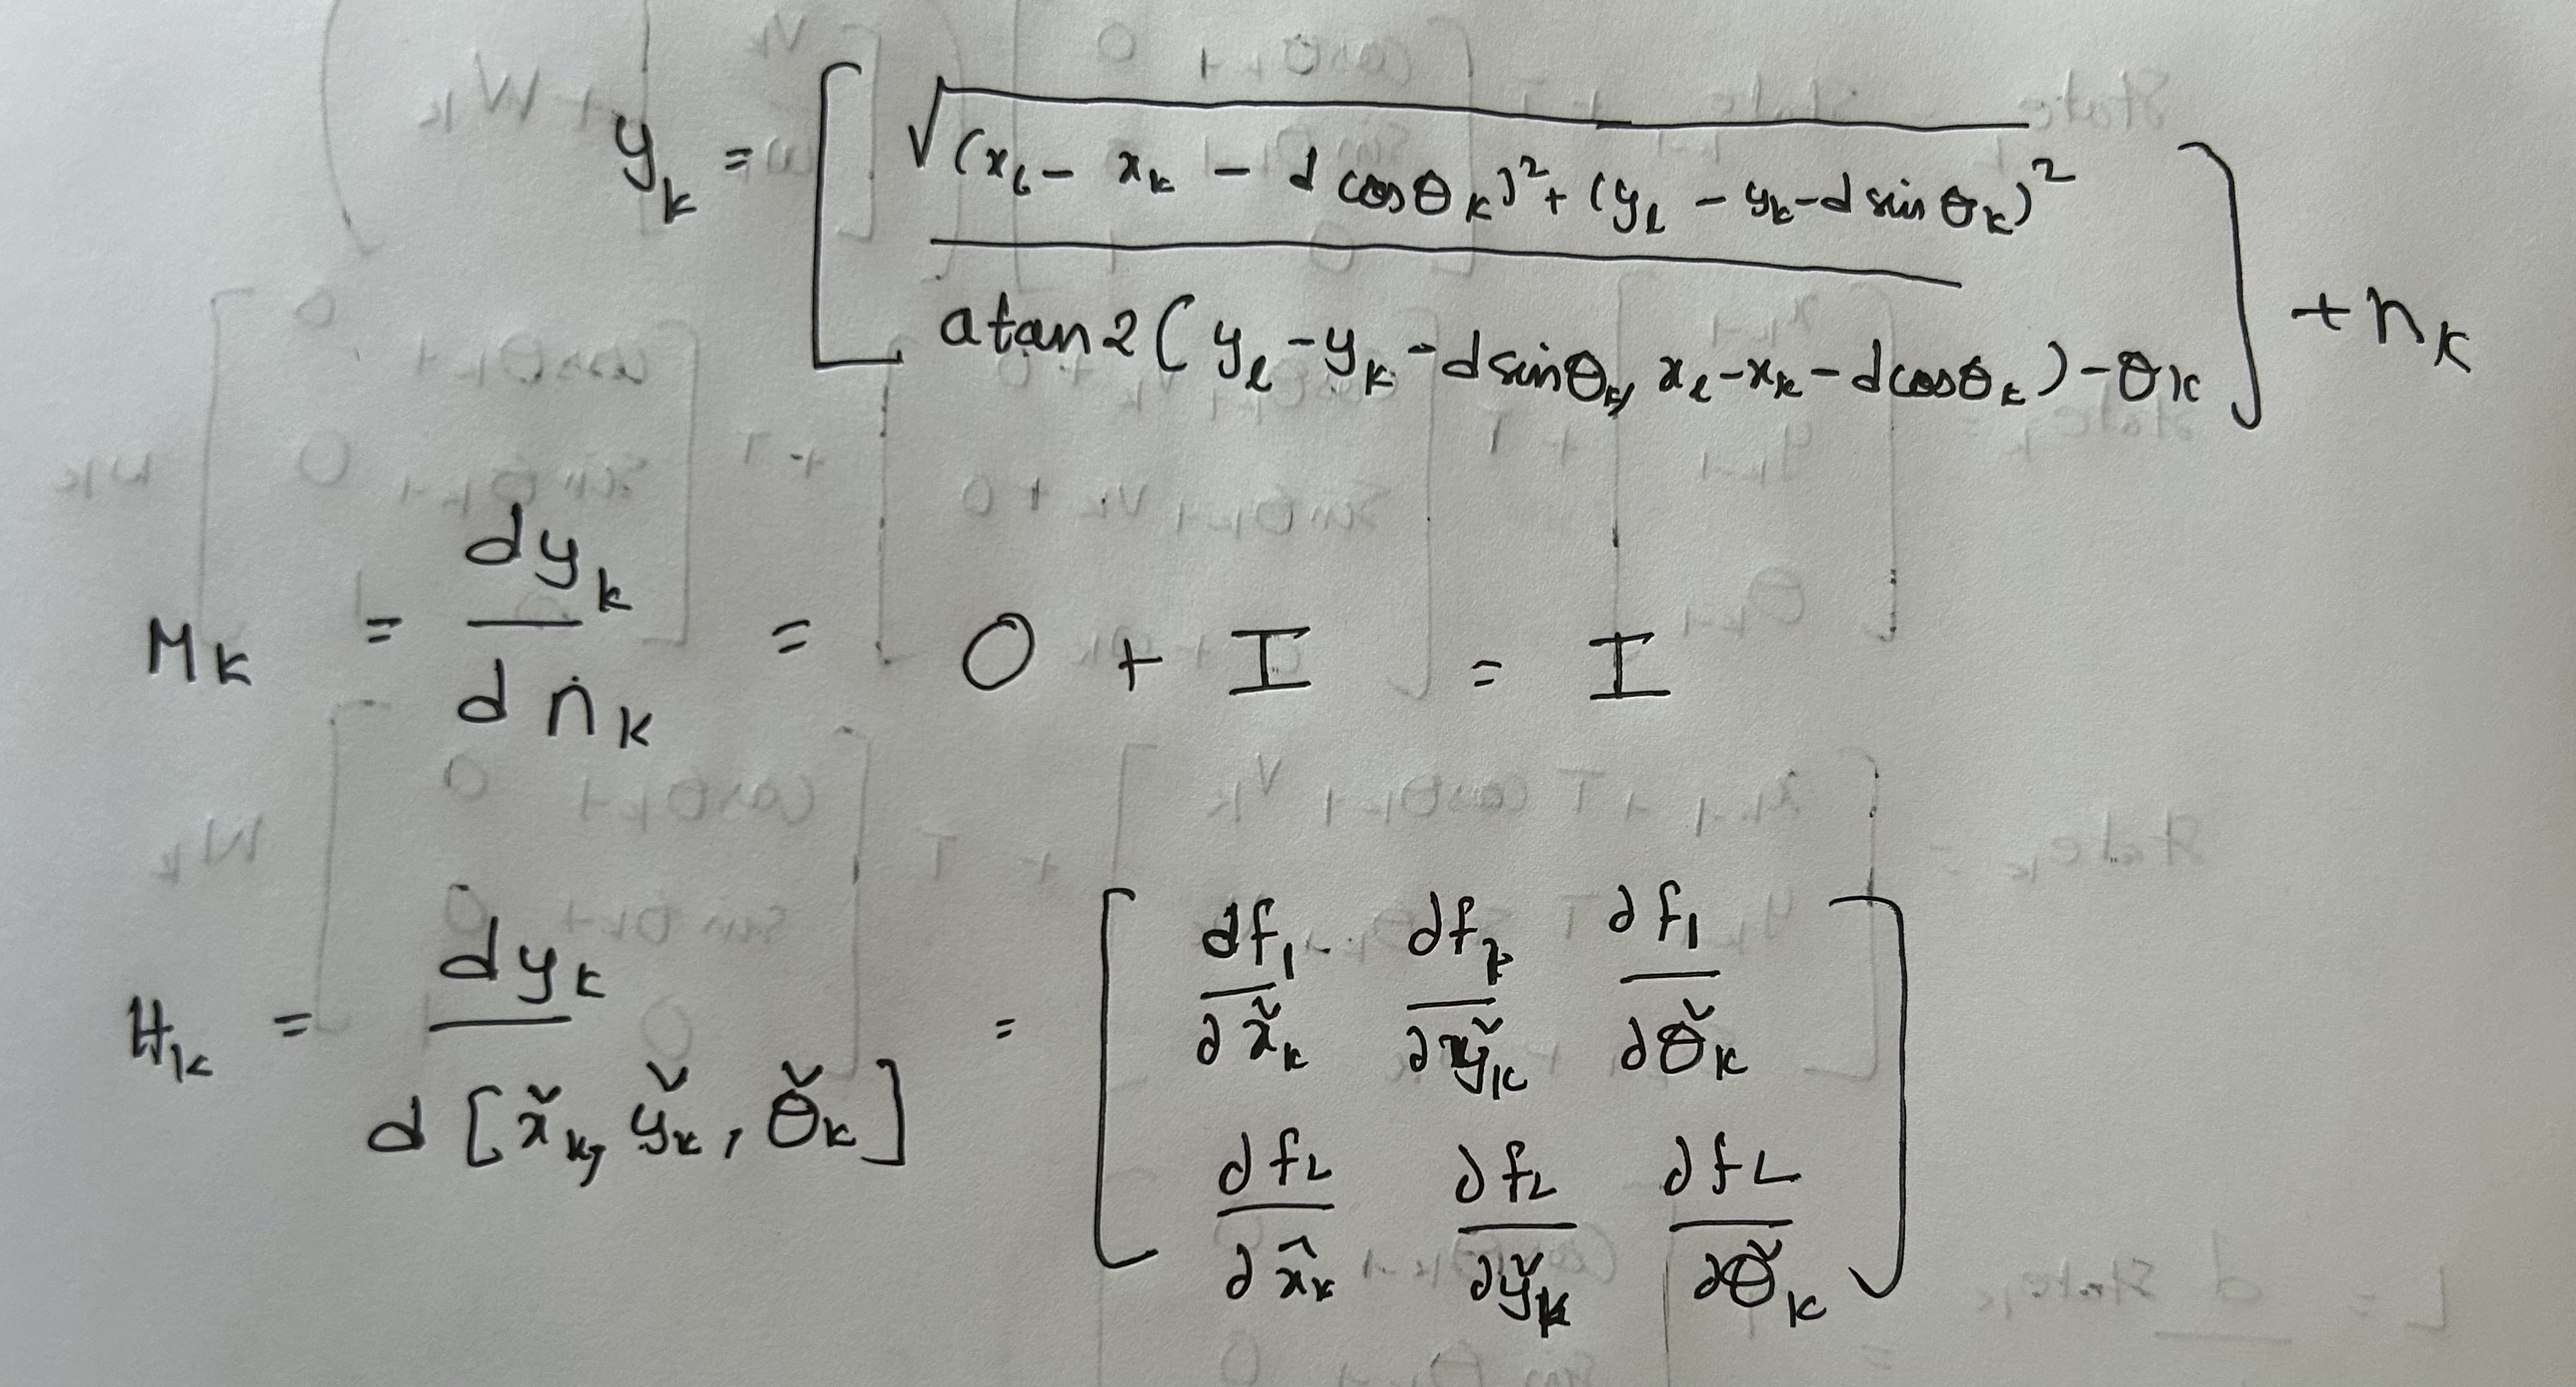 y_k = [ √((x_l - x_k - d cosθ_k)² + (y_l - y_k - d sinθ_k)²)
atan2(y_l - y_k - d sinθ_k, x_l - x_k - d cosθ_k) - θ_k ] + n_k
M_k = dy_k / dn_k = 0 + I = I
H_k = dy_k / d[x̌_k, y̌_k, θ̌_k] = [ ∂f_1/∂x̌_k ∂f_1/∂y̌_k ∂f_1/∂θ̌_k
∂f_2/∂x̂_k ∂f_2/∂y̌_k ∂f_2/∂θ̌_k ]